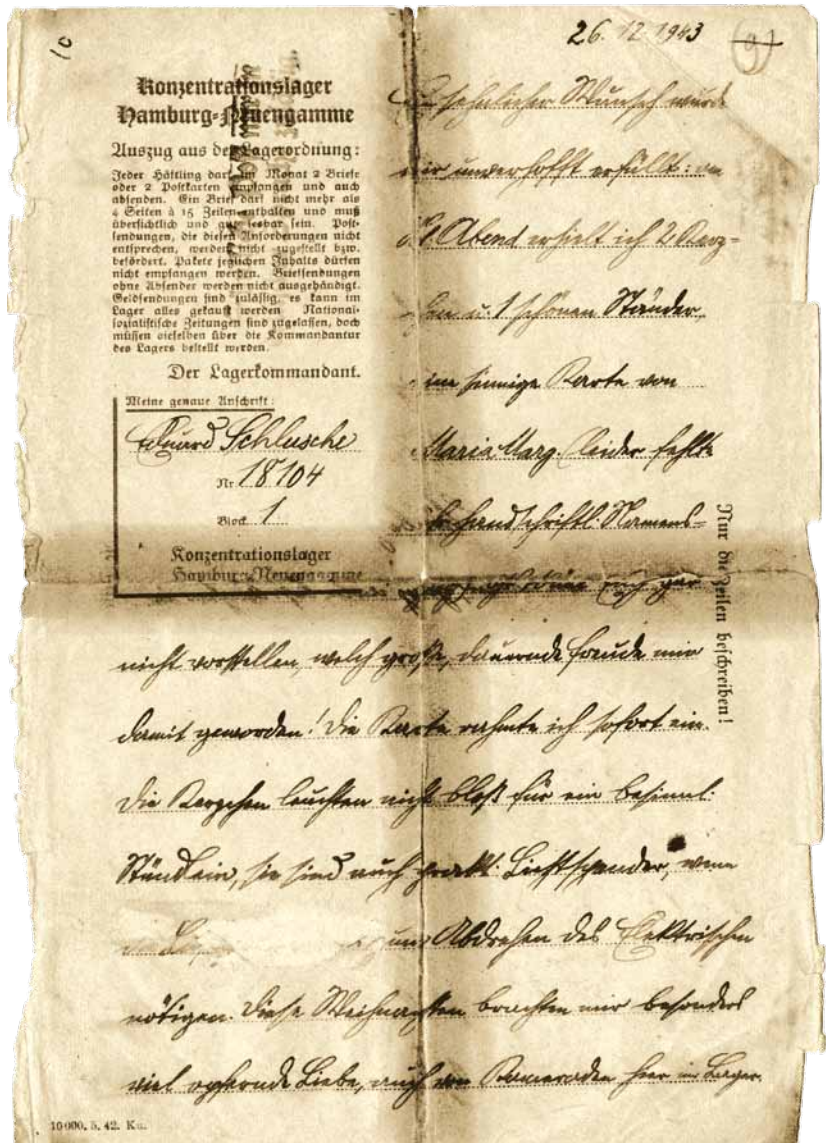 10
26. 12 1943
9
Konzentrationslager
Hamburg-Neuengamme
Auszug aus der Lagerordnung:
Jeder Häftling darf im Monat 2 Briefe
oder 2 Postkarten empfangen und auch
absenden. Ein Brief darf nicht mehr als
4 Seiten à 15 Zeilen enthalten und muß
übersichtlich und gut lesbar sein. Post-
sendungen, die diesen Anforderungen nicht
entsprechen, werden nicht zugestellt bzw.
befördert. Pakete jeglichen Inhalts dürfen
nicht empfangen werden. Briefsendungen
ohne Absender werden nicht ausgehändigt.
Geldsendungen sind zulässig, es kann im
Lager alles gekauft werden National-
sozialistische Zeitungen sind zugelassen, doch
müssen dieselben über die Kommandantur
des Lagers bestellt werden.
Der Lagerkommandant.
Meine genaue Anschrift:
Eduard Schlusche
Nr 18104
Block 1
Konzentrationslager
Hamburg-Neuengamme
sehnlicher Wunsch wurde
mir unverhofft erfüllt: am
Abend erhielt ich 2 Kerz-
chen u. 1 schönen Ständer
eine sinnige Karte von
Maria Marg. Leider fehlte
handschriftl. Namens-
gar
nicht vorstellen, welch große, dauernde Freude mir
damit geworden! Die Karte rahmte ich sofort ein.
Die Kerzchen leuchten nicht bloß für ein besinnl.
Stündlein, sie sind auch prakt. Lichtspender, wenn
zum Abdrehen des Elektrischen
nötigen. Diese Weihnachten brachten mir besonders
viel opfernde Liebe, auch von Kameraden hier im Lager.
Nur die Zeilen beschreiben!
10000. 5. 42.